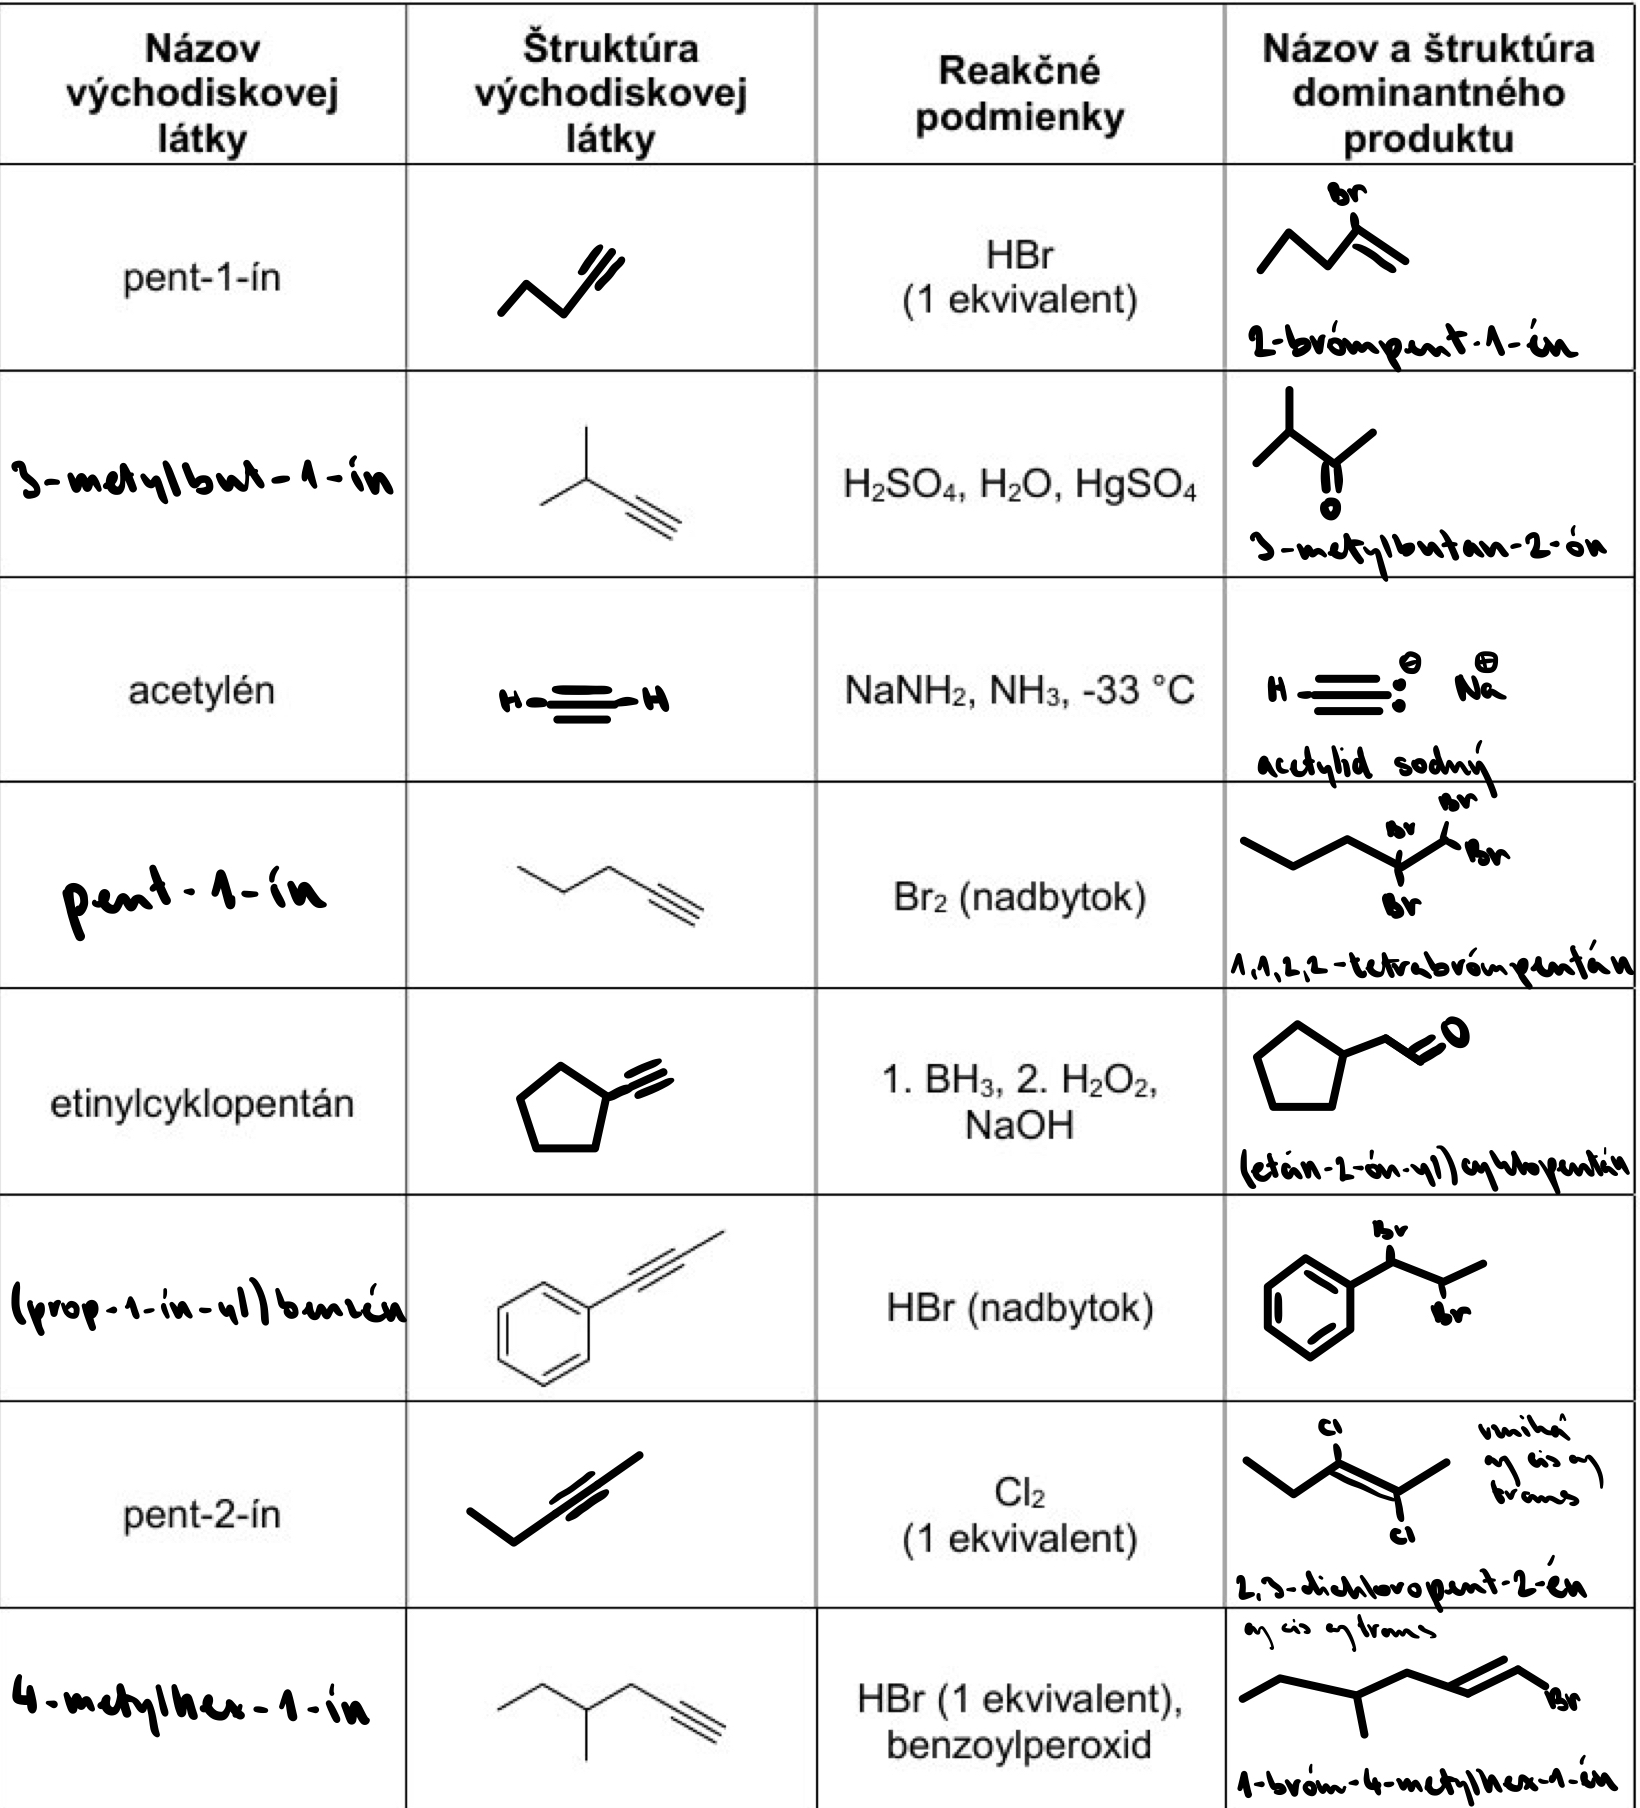 Názov
východiskovej
látky
Štruktúra
východiskovej
látky
Reakčné
podmienky
Názov a štruktúra
dominantného
produktu
pent-1-ín
HBr
(1 ekvivalent)
Br
2-brómpent-1-én
3-metylbut-1-ín
H₂SO₄, H₂O, HgSO₄
O
3-metylbutan-2-ón
acetylén
H H
NaNH₂, NH₃, -33 °C
H ⊖ Na ⊕
acetylid sodný
pent-1-ín
Br₂ (nadbytok)
Br
Br
Br
Br
1,1,2,2-tetrabrómpentán
etinylcyklopentán
1. BH₃, 2. H₂O₂,
NaOH
O
(etán-2-ón-yl)cyklopentán
(prop-1-ín-yl)benzén
HBr (nadbytok)
Br
Br
pent-2-ín
Cl₂
(1 ekvivalent)
Cl
Cl
vzniká
aj cis aj
trans
2,3-dichloropent-2-én
4-metylhex-1-ín
HBr (1 ekvivalent),
benzoylperoxid
aj cis aj trans
Br
1-bróm-4-metylhex-1-én